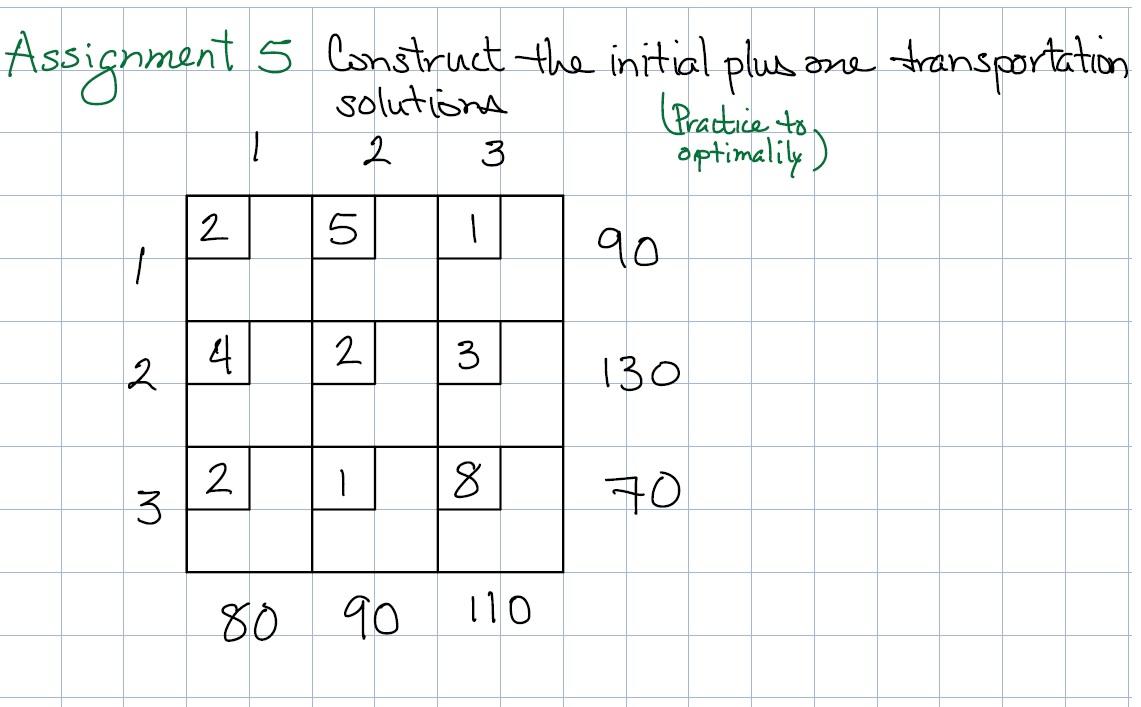 Assignment 5 Construct the initial plus one transportation
solutions (Practice to
optimalily)
1 2 3
1 2 5 1 90
2 4 2 3 130
3 2 1 8 70
80 90 110